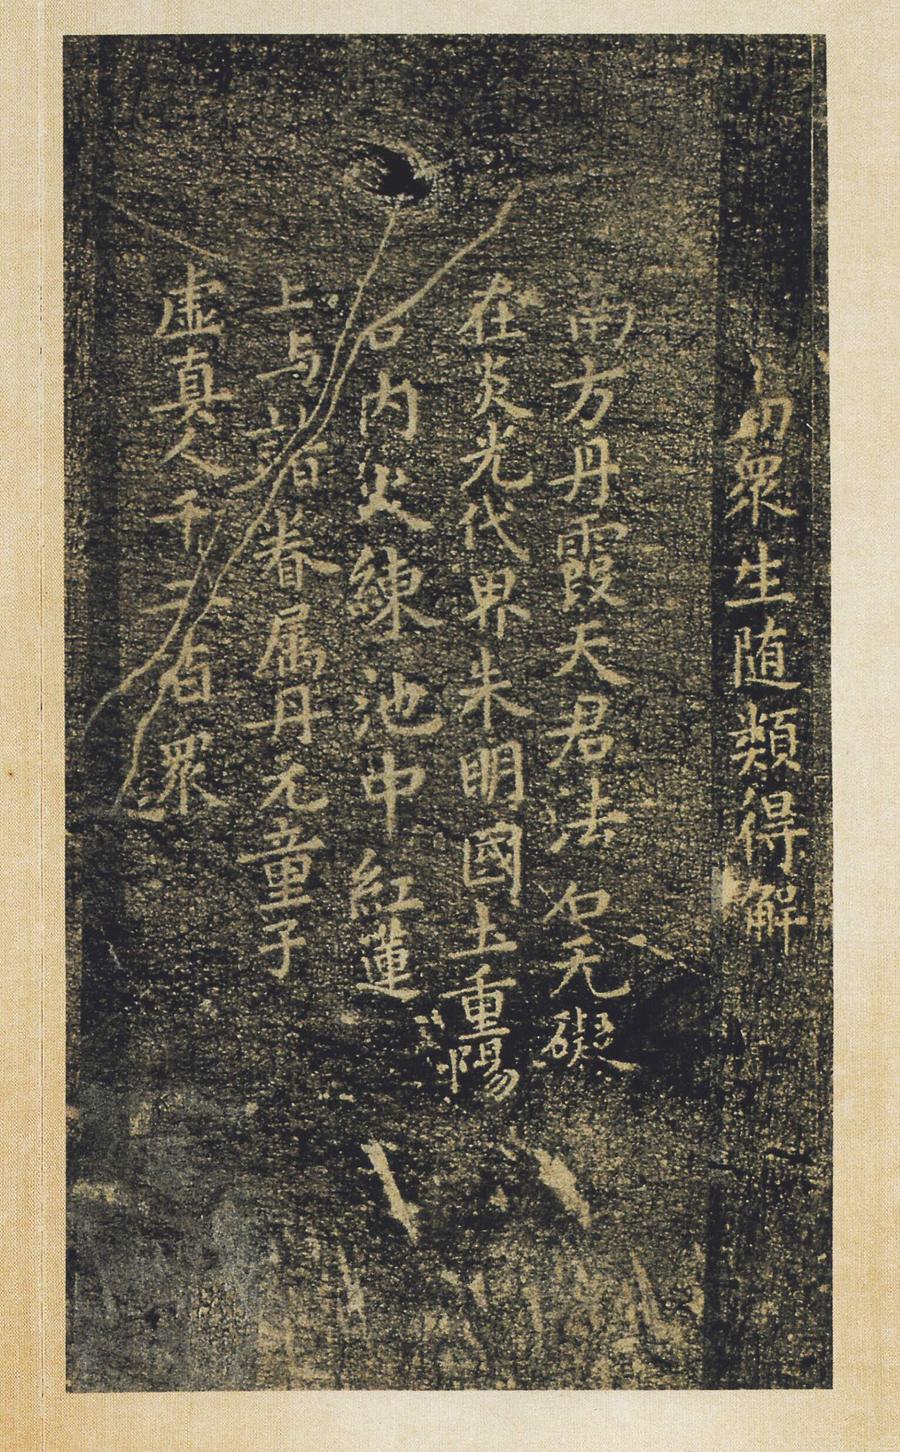 切衆生随類得解
南方丹霞天君法名无礙
在炎光代界朱明國土重惕
名内火練池中紅蓮
上与諸眷属丹元童子
虚真人千二百衆